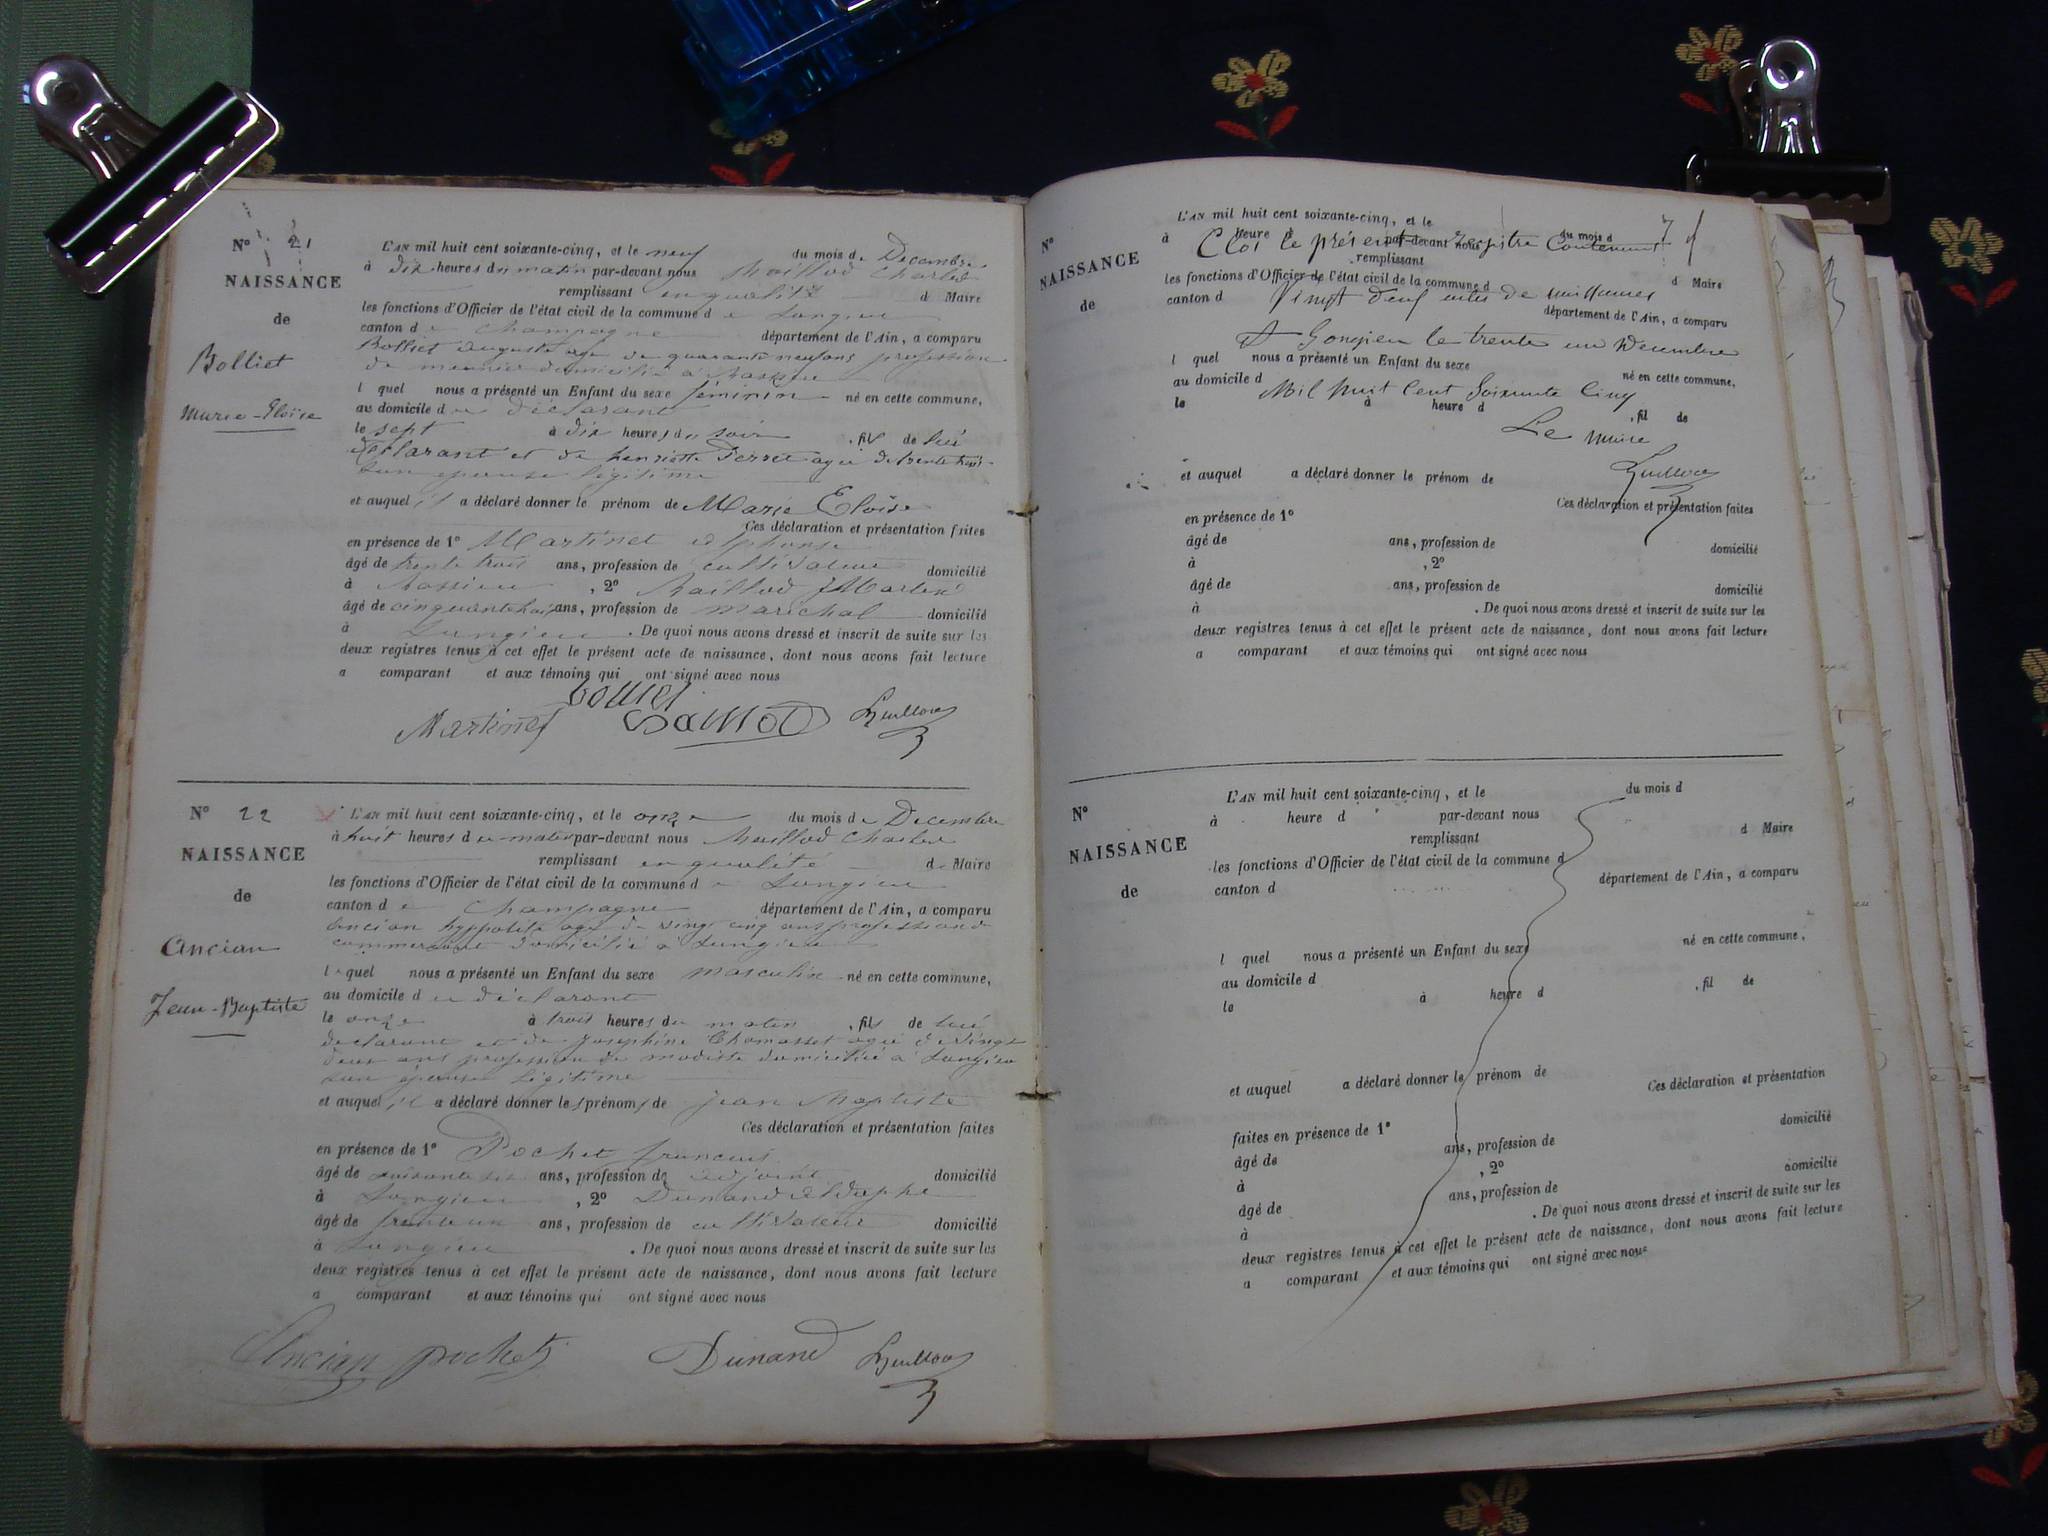 N° 21
NAISSANCE
de
Bolliet
Marie-Eloïse
L'AN mil huit cent soixante-cinq, et le neuf du mois de Décembre
à dix heures du matin par-devant nous Charles
remplissant en qualité d Maire
les fonctions d'Officier de l'état civil de la commune de Songieu
canton de Champagne département de l'Ain, a comparu
Bolliet auguste agé de quarante neuf ans profession
de meunier domicilié à
lequel nous a présenté un Enfant du sexe féminin né en cette commune,
au domicile du déclarant
le sept à dix heures du soir , fils de lui
déclarant et de henriette Perret agée de trente
son épouse légitime
et auquel il a déclaré donner le prénom de Marie Eloïse
Ces déclaration et présentation faites
en présence de 1° Martinet alphonse
âgé de trente trois ans, profession de cultivateur domicilié
à , 2°
âgé de cinquante huit ans, profession de maréchal domicilié
à Songieu . De quoi nous avons dressé et inscrit de suite sur les
deux registres tenus à cet effet le présent acte de naissance, dont nous avons fait lecture
a comparant et aux témoins qui ont signé avec nous
Bolliet
Martinet
N° 22
NAISSANCE
de
Ancian
Jean-Baptiste
L'AN mil huit cent soixante-cinq, et le onze du mois de Décembre
à huit heures du matin par-devant nous Charles
remplissant en qualité de Maire
les fonctions d'Officier de l'état civil de la commune de Songieu
canton de Champagne département de l'Ain, a comparu
Ancian hyppolite agé de vingt cinq ans profession de
commerçant domicilié à Songieu
lequel nous a présenté un Enfant du sexe masculin né en cette commune,
au domicile du déclarant
le onze à trois heures du matin , fils de lui
déclarant et de Joséphine Thomasset agée de vingt
deux ans profession de modiste domiciliée à Songieu
son épouse légitime
et auquel il a déclaré donner les prénoms de jean Baptiste
Ces déclaration et présentation faites
en présence de 1° Pochet francois
âgé de soixante ans, profession de adjoint domicilié
à Songieu , 2° Dunand
âgé de trente un ans, profession de cultivateur domicilié
à Songieu . De quoi nous avons dressé et inscrit de suite sur les
deux registres tenus à cet effet le présent acte de naissance, dont nous avons fait lecture
a comparant et aux témoins qui ont signé avec nous
Ancian pochet Dunand
7
N°
NAISSANCE
de
L'AN mil huit cent soixante-cinq, et le du mois d
à heure d par-devant nous
Clos le présent registre Contenant
remplissant
les fonctions d'Officier de l'état civil de la commune d d Maire
canton d
Vingt deux actes de naissances
département de l'Ain, a comparu
A Songieu le trente un Décembre
l quel nous a présenté un Enfant du sexe né en cette commune,
au domicile d
Mil huit Cent Soixante Cinq
le à heure d , fil de
Le Maire
et auquel a déclaré donner le prénom de
Ces déclaration et présentation faites
en présence de 1°
âgé de ans, profession de domicilié
à , 2°
âgé de ans, profession de domicilié
à . De quoi nous avons dressé et inscrit de suite sur les
deux registres tenus à cet effet le présent acte de naissance, dont nous avons fait lecture
a comparant et aux témoins qui ont signé avec nous
N°
NAISSANCE
de
L'AN mil huit cent soixante-cinq, et le du mois d
à heure d par-devant nous
remplissant d Maire
les fonctions d'Officier de l'état civil de la commune d
canton d département de l'Ain, a comparu
l quel nous a présenté un Enfant du sexe né en cette commune,
au domicile d
le à heure d , fil de
et auquel a déclaré donner le prénom de
Ces déclaration et présentation
faites en présence de 1° domicilié
âgé de ans, profession de
à , 2° domicilié
âgé de ans, profession de
à . De quoi nous avons dressé et inscrit de suite sur les
deux registres tenus à cet effet le présent acte de naissance, dont nous avons fait lecture
a comparant et aux témoins qui ont signé avec nous